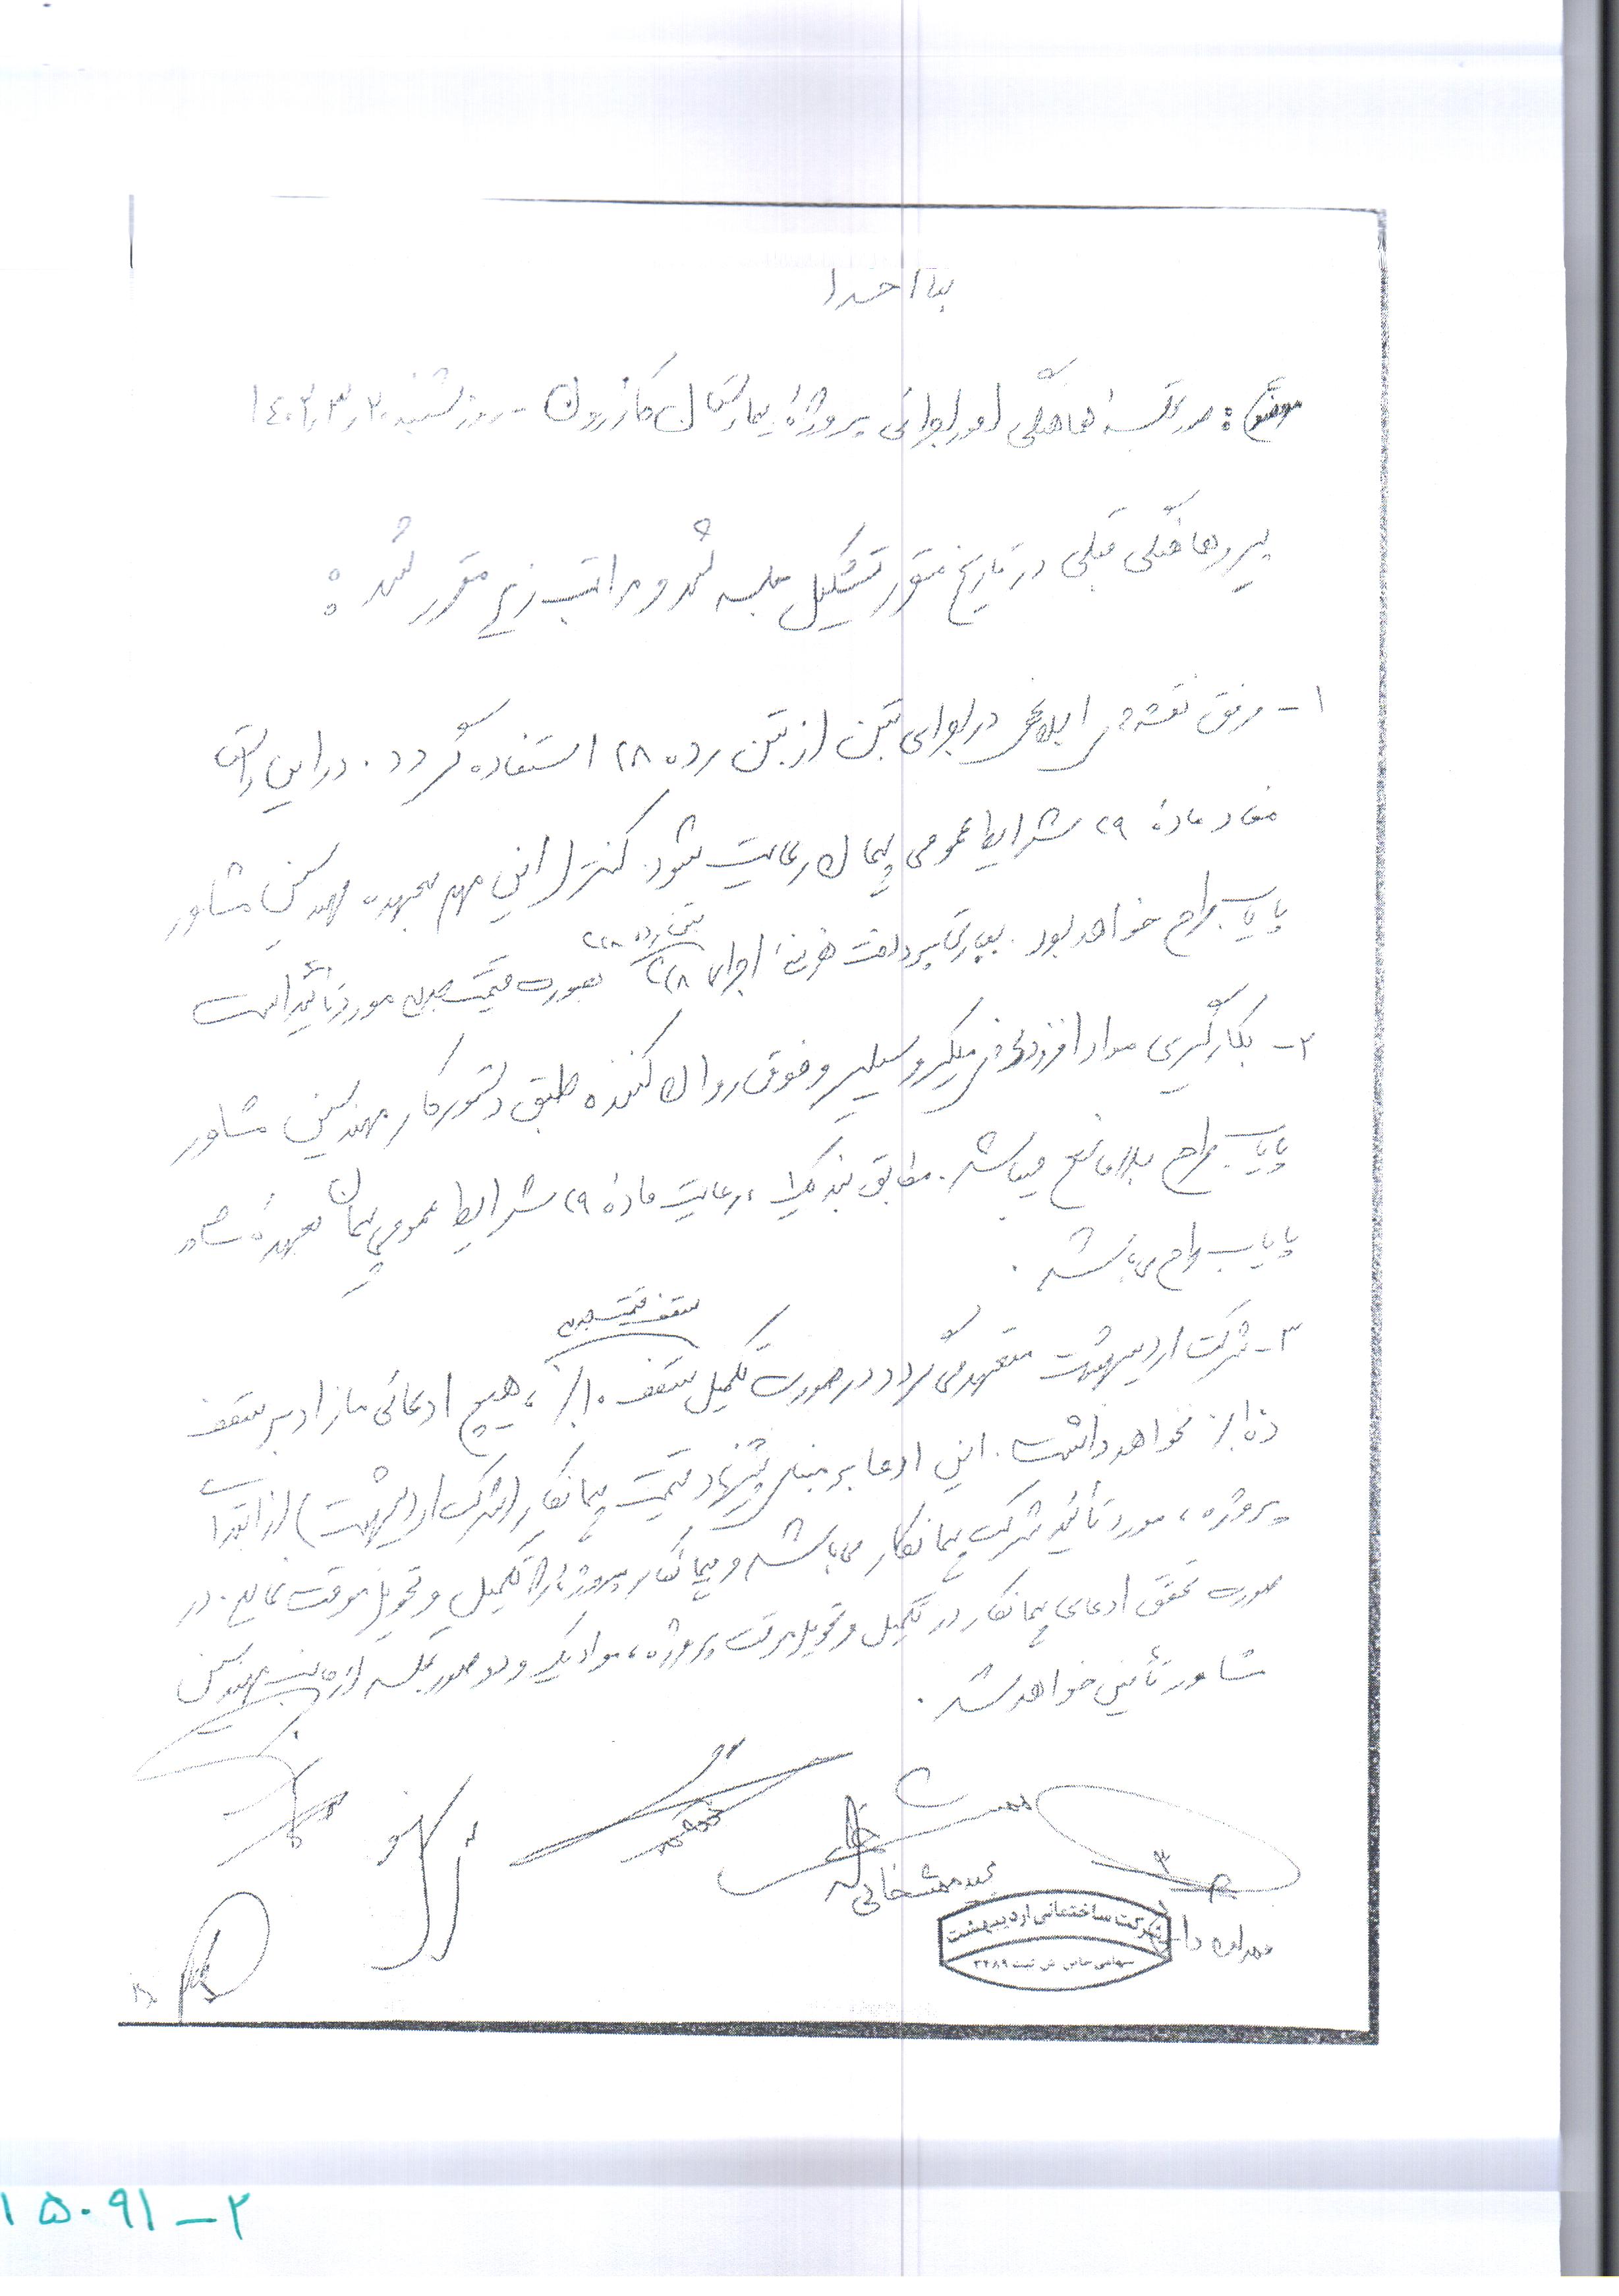 موضوع : صورتجلسه هماهنگی امور اجرائی پروژهٔ بیمارستان کازرون - روز شنبه
پیرو هماهنگی قبلی در تاریخ تشکیل جلسه شد و مراتب زیر مقرر شد :
۱- نقشه های ابلاغی در اجرای بتن از بتن رده ۲۸ استفاده گردد . در این راستا
مفاد مادهٔ ۲۹ شرایط عمومی پیمان رعایت شود. کنترل این مهم بعهده مهندسین مشاور
پایاب خواهد بود . پرداخت هزینهٔ اجرای بصورت قیمت جدید مورد تأیید است
بتن رده
۲- بکارگیری مواد افزودنی میکروسیلیس و فوق روان کننده طبق دستور کار مهندسین مشاور
پایاب بلامانع میباشد . مطابق بند یک ، رعایت مادهٔ ۲۹ شرایط عمومی پیمان بعهدهٔ مشاور
پایاب می باشد .
سقف قیمت جدید
۳- شرکت اردیبهشت متعهد می گردد در صورت تکمیل سقف ۱۰٪ ، هیچ ادعائی مازاد بر سقف
نخواهد داشت . این ادعا بر مبنای پیشنهاد قیمت پیمانکار (شرکت اردیبهشت) از ابتدای
پروژه ، مورد تأیید شرکت پیمانکار می باشد و پیمانکار پروژه را تکمیل و تحویل موقت نماید . در
صورت تحقق ادعای پیمانکار در تکمیل و تحویل موقت پروژه ، موارد یک و دو صورتجلسه از جانب مهندسین
مشاور تأمین خواهد شد .
شرکت ساختمانی اردیبهشت
سهامی خاص ش ثبت ۳۴۸۹
۱۵۰۹۱-۲